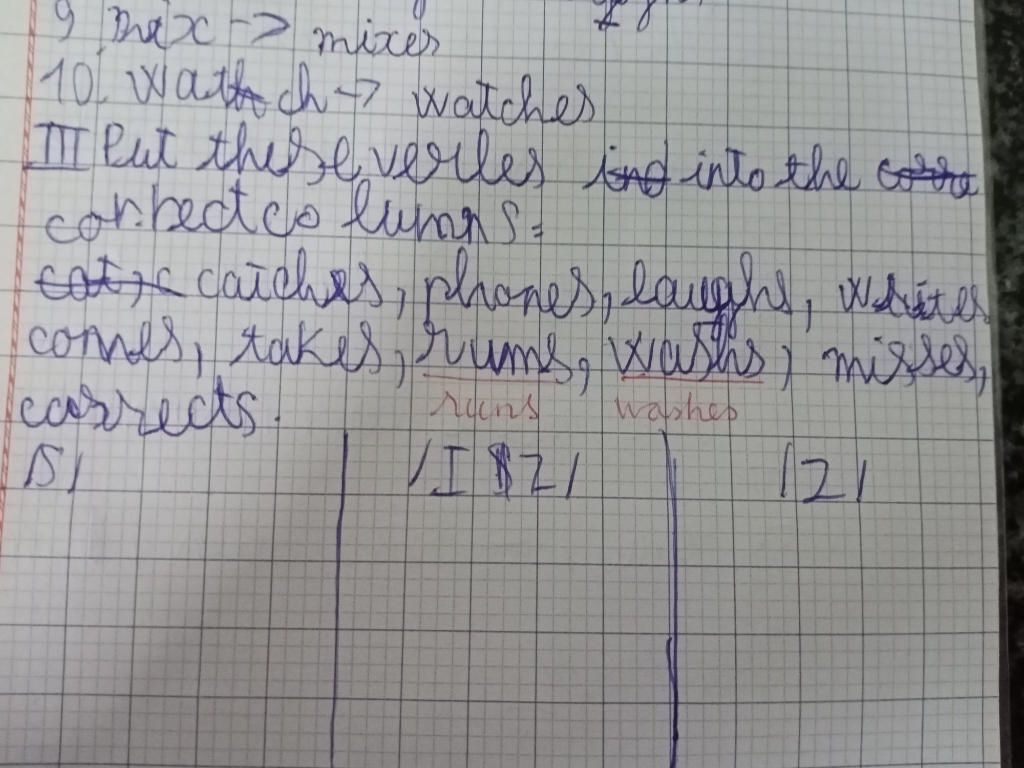 9. mix -> mixes
10. watch -> watches
III Put these verbes into the
correct columns:
catches, phones, laughs, writes
comes, takes, rums, washs, misses,
corrects.
runs washes
/S/ /IZ/ /Z/